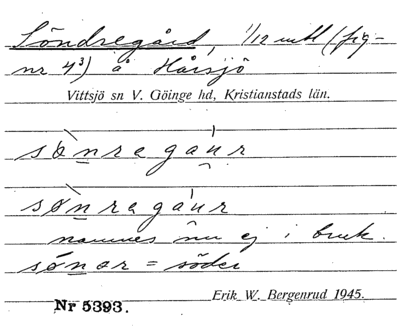 Söndregård, 1/12 mtl (fig-
nr 4³) å Hårsjö
Vittsjö sn V. Göinge hd, Kristianstads län.
sònregaúr
sønregáur
namnes nu ej i bruk.
sónar = söder
Erik W. Bergenrud 1945.
Nr 5393.